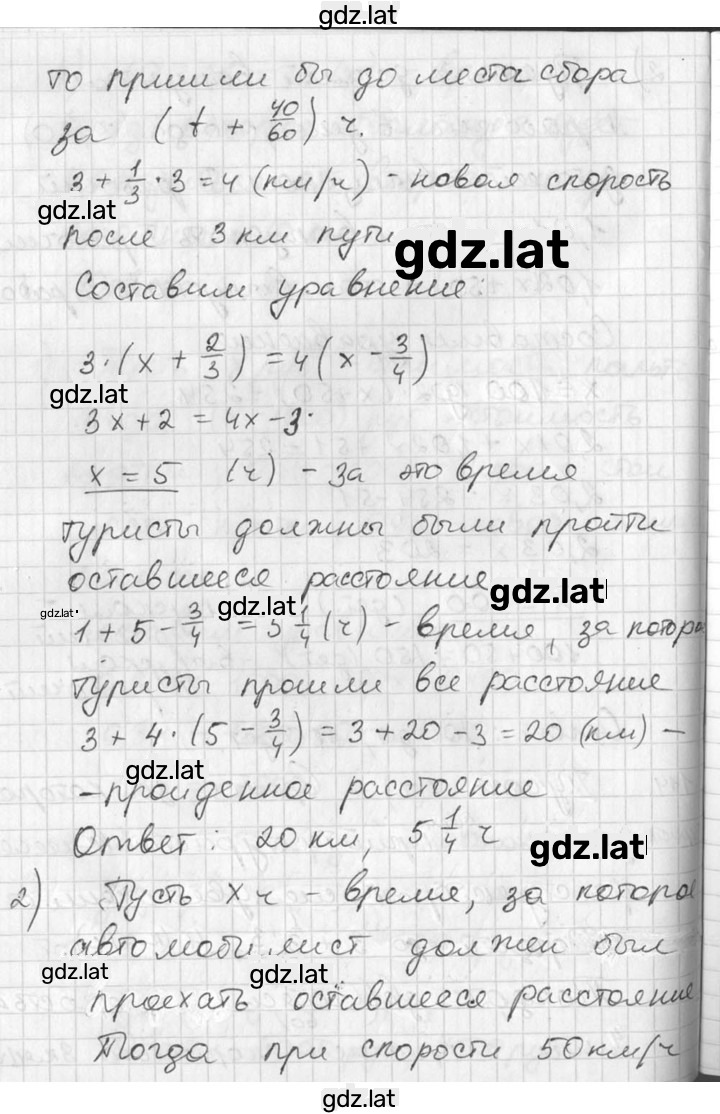 gdz.lat
то пришли бы до места сбора
за (t + 40/60) ч.
3 + 1/3 · 3 = 4 (км/ч) - новая скорость
gdz.lat
после 3 км пути
gdz.lat
Составим уравнение:
3·(x + 2/3) = 4(x - 3/4)
gdz.lat
3x + 2 = 4x - 3
x = 5 (ч) - за это время
туристы должны были пройти
оставшееся расстояние
gdz.lat
gdz.lat
gdz.lat
1 + 5 - 3/4 = 5 1/4 (ч) - время, за котор
туристы прошли все расстояние
3 + 4·(5 - 3/4) = 3 + 20 - 3 = 20 (км) -
gdz.lat
- пройденное расстояние
Ответ: 20 км, 5 1/4 ч
gdz.lat
2) Пусть x ч - время, за которое
автомобилист должен был
gdz.lat
gdz.lat
проехать оставшееся расстояние
Тогда при скорости 50 км/ч
gdz.lat